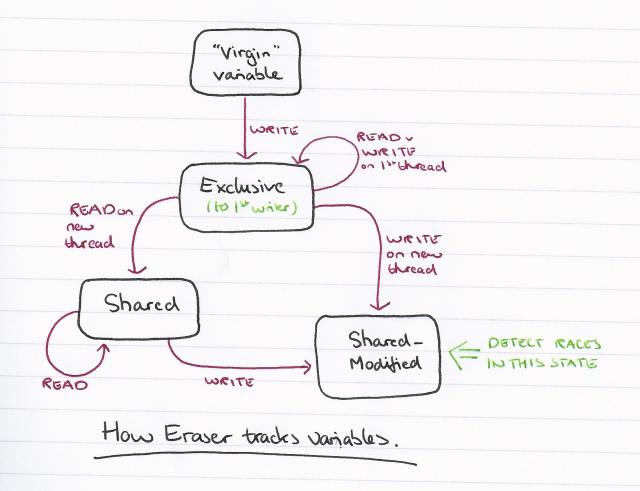 "Virgin"
variable
WRITE
READ v
WRITE
on 1st thread
Exclusive
(to 1st writer)
READ on
new
thread
WRITE
on new
thread
Shared
Shared-
Modified
DETECT RACES
IN THIS STATE
READ
WRITE
How Eraser tracks variables.